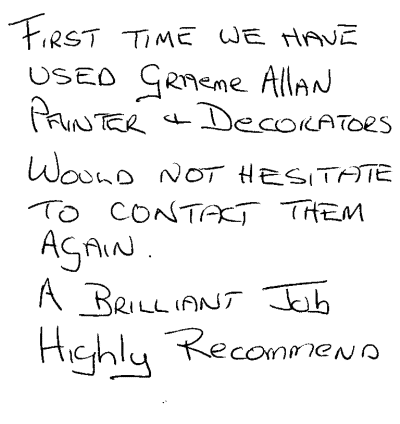 FIRST TIME WE HAVE
USED Graeme Allan
PAINTER & DECORATORS
WOULD NOT HESITATE
TO CONTACT THEM
AGAIN.
A BRILLIANT Job
Highly Recommend